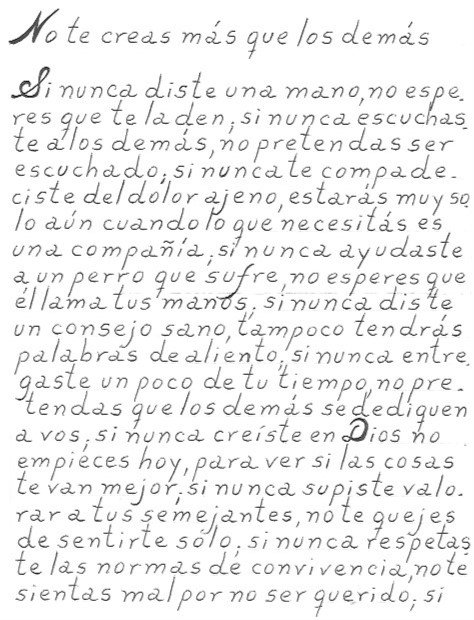 No te creas más que los demás
Si nunca diste una mano, no espe-
res que te la den; si nunca escuchas-
te a los demás, no pretendas ser
escuchado; si nunca te compade-
ciste del dolor ajeno, estarás muy so-
lo aún cuando lo que necesitás es
una compañía; si nunca ayudaste
a un perro que sufre, no esperes que
él lama tus manos; si nunca diste
un consejo sano, tampoco tendrás
palabras de aliento; si nunca entre-
gaste un poco de tu tiempo, no pre-
tendas que los demás se dediquen
a vos; si nunca creíste en Dios no
empieces hoy, para ver si las cosas
te van mejor; si nunca supiste valo-
rar a tus semejantes, no te quejes
de sentirte sólo; si nunca respetas-
te las normas de convivencia, no te
sientas mal por no ser querido; si